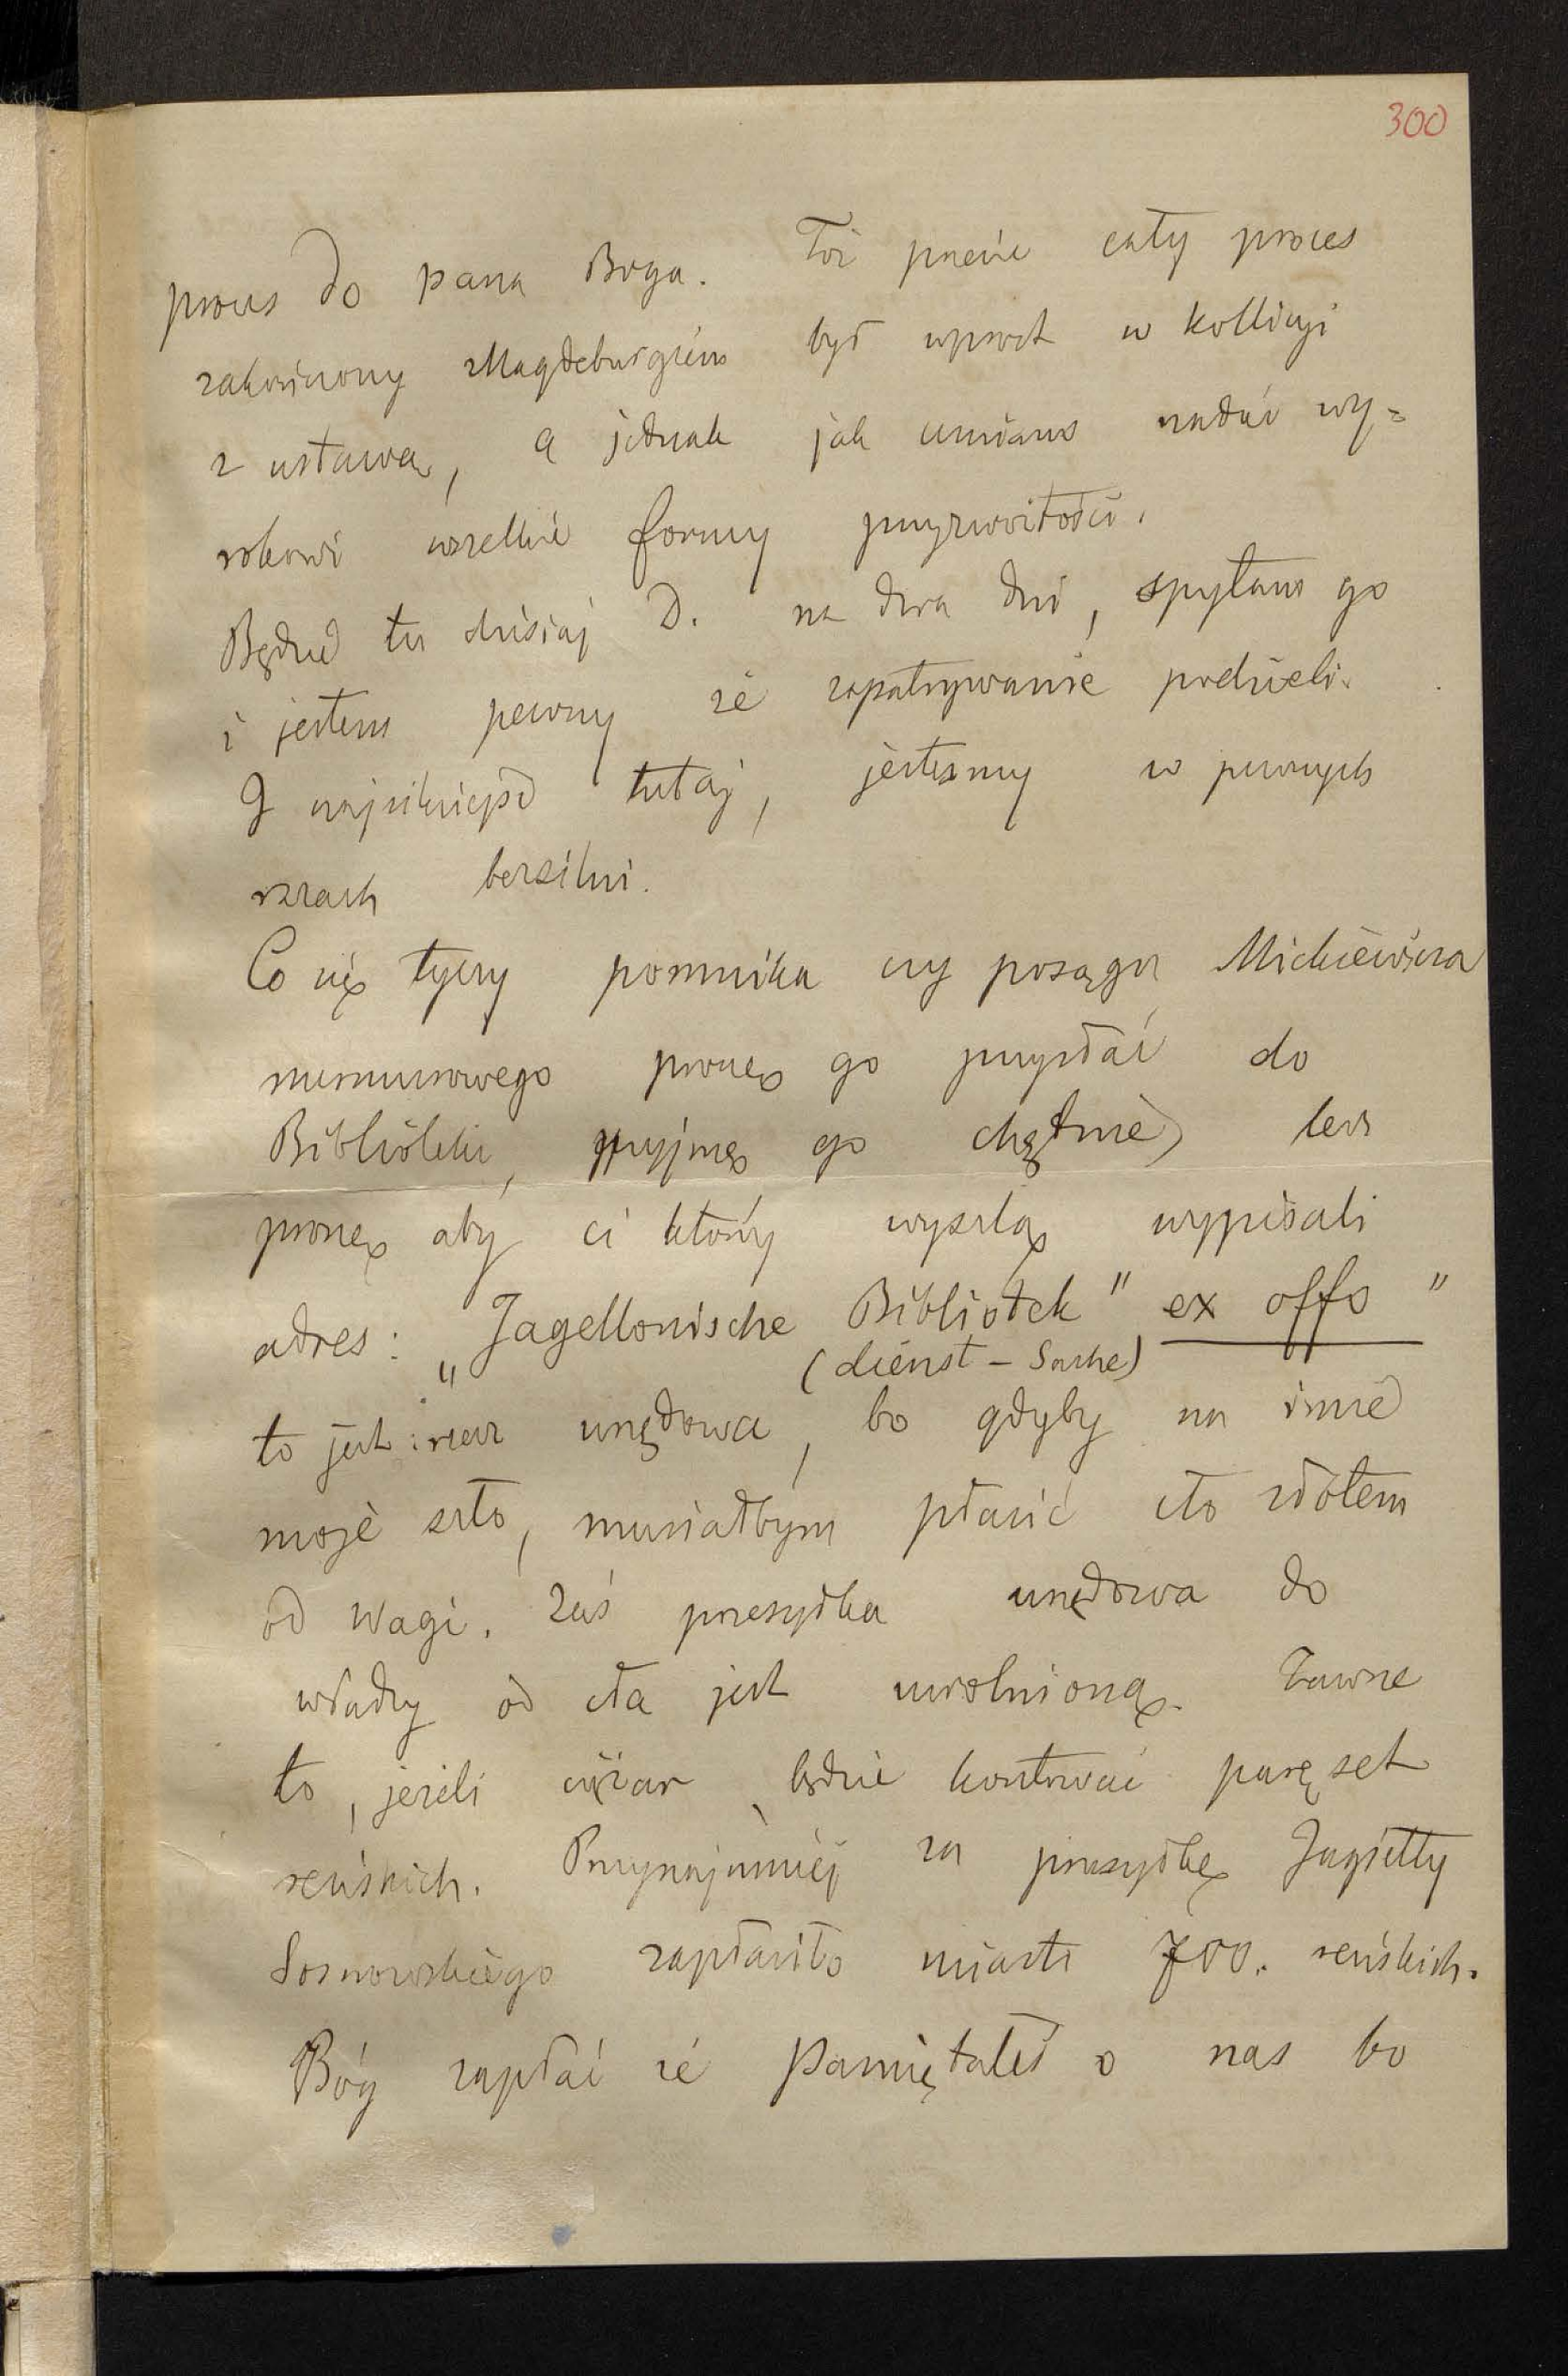 300
proces do pana Boga. Toż przecie cały proces
zakończony Magdeburgiem był wprost w kollizyi
z ustawą, a jednak jak umiano nadać wy=
rokowi wszelkie formy przyzwoitości.
Będzie tu dzisiaj D. na dwa dni, spytam go
i jestem pewny że zapatrywanie podzieli.
I najsilniejsi tutaj, jesteśmy w pewnych
razach bezsilni.
Co się tyczy pomnika czy posągu Mickiewicza
marmurowego proszę go przysłać do
Biblioteki, przyjmę go chętnie, lecz
proszę aby ci którzy wyszlą wypisali
adres: „Jagellonische Bibliotek" ex offo "
(dienst - Sache)
to jest: rzecz urzędowa, bo gdyby na imie
moje szło, musiałbym płacić cło złotem
od wagi. Zaś przesyłka urzędowa do
władzy od cła jest uwolnioną. Zawsze
to, jeżeli ciężar, będzie kosztować paręset
reńskich. Przynajmniej za przesyłkę Jagiełły
Sosnowskiego zapłaciło miasto 700. reńskich.
Bóg zapłać że pamiętałeś o nas bo